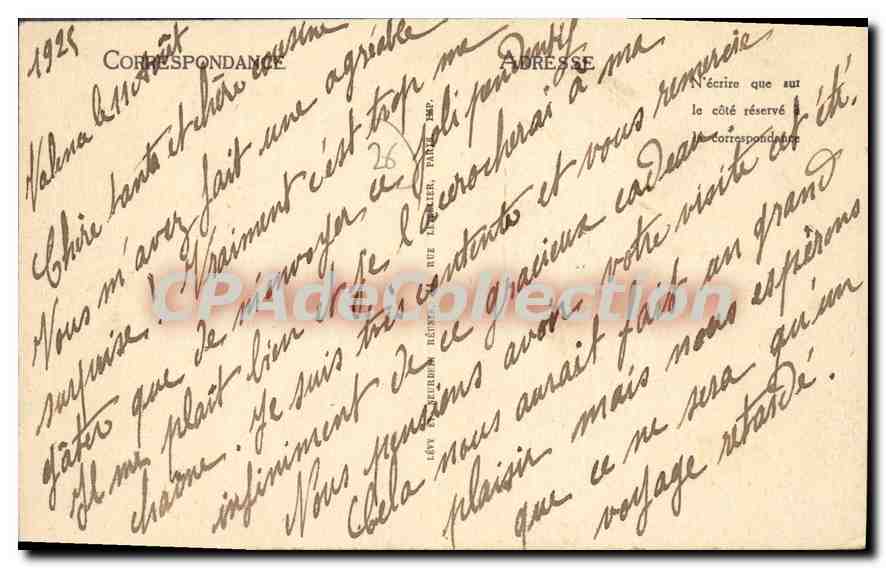 1925
CORRESPONDANCE
ADRESSE
N'écrire que sur
le côté réservé à
la correspondance
le 11 Août
Chère tante et chère cousine
Vous m'avez fait une agréable
surprise! Vraiment c'est trop me
gâter que de m'envoyer ce joli pendentif
Il me plaît bien et je l'accrocherai à ma
chaîne. Je suis très contente et vous remercie
infiniment de ce gracieux cadeau.
Nous pensions avoir votre visite cet été.
Cela nous aurait fait un grand
plaisir mais nous espérons
que ce ne sera qu'un
voyage retardé.
26
LÉVY ET NEURDEIN RÉUNIS, RUE LETELLIER, PARIS IMP.
CPAdeCollection.com